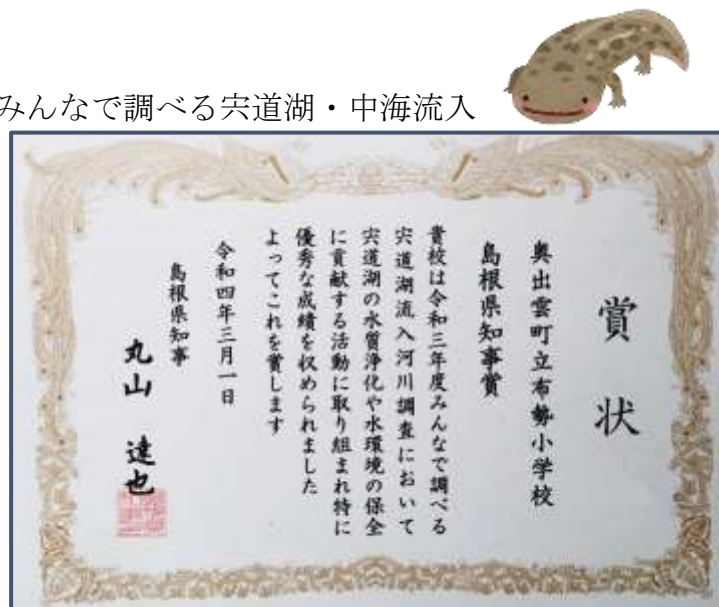 みんなで調べる宍道湖・中海流入
賞状
奥出雲町立布勢小学校
島根県知事賞
貴校は令和三年度みんなで調べる
宍道湖流入河川調査において
宍道湖の水質浄化や水環境の保全
に貢献する活動に取り組まれ特に
優秀な成績を収められました
よってこれを賞します
令和四年三月一日
島根県知事
丸山 達也